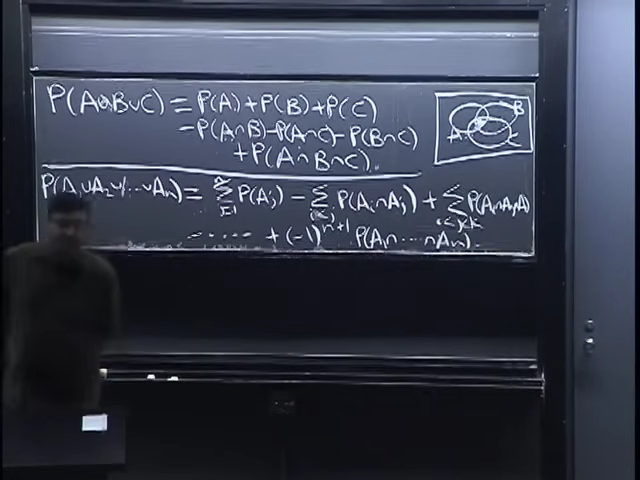 P(A∪B∪C) = P(A) + P(B) + P(C)
- P(A∩B) - P(A∩C) - P(B∩C)
+ P(A∩B∩C).
A B C
P(A₁∪A₂∪...∪Aₙ) = Σⁿⱼ₌₁ P(Aⱼ) - Σ i<j P(Aᵢ∩Aⱼ) + Σ i<j<k P(Aᵢ∩Aⱼ∩Aₖ)
- ...... + (-1)ⁿ⁺¹ P(A₁∩...∩Aₙ).